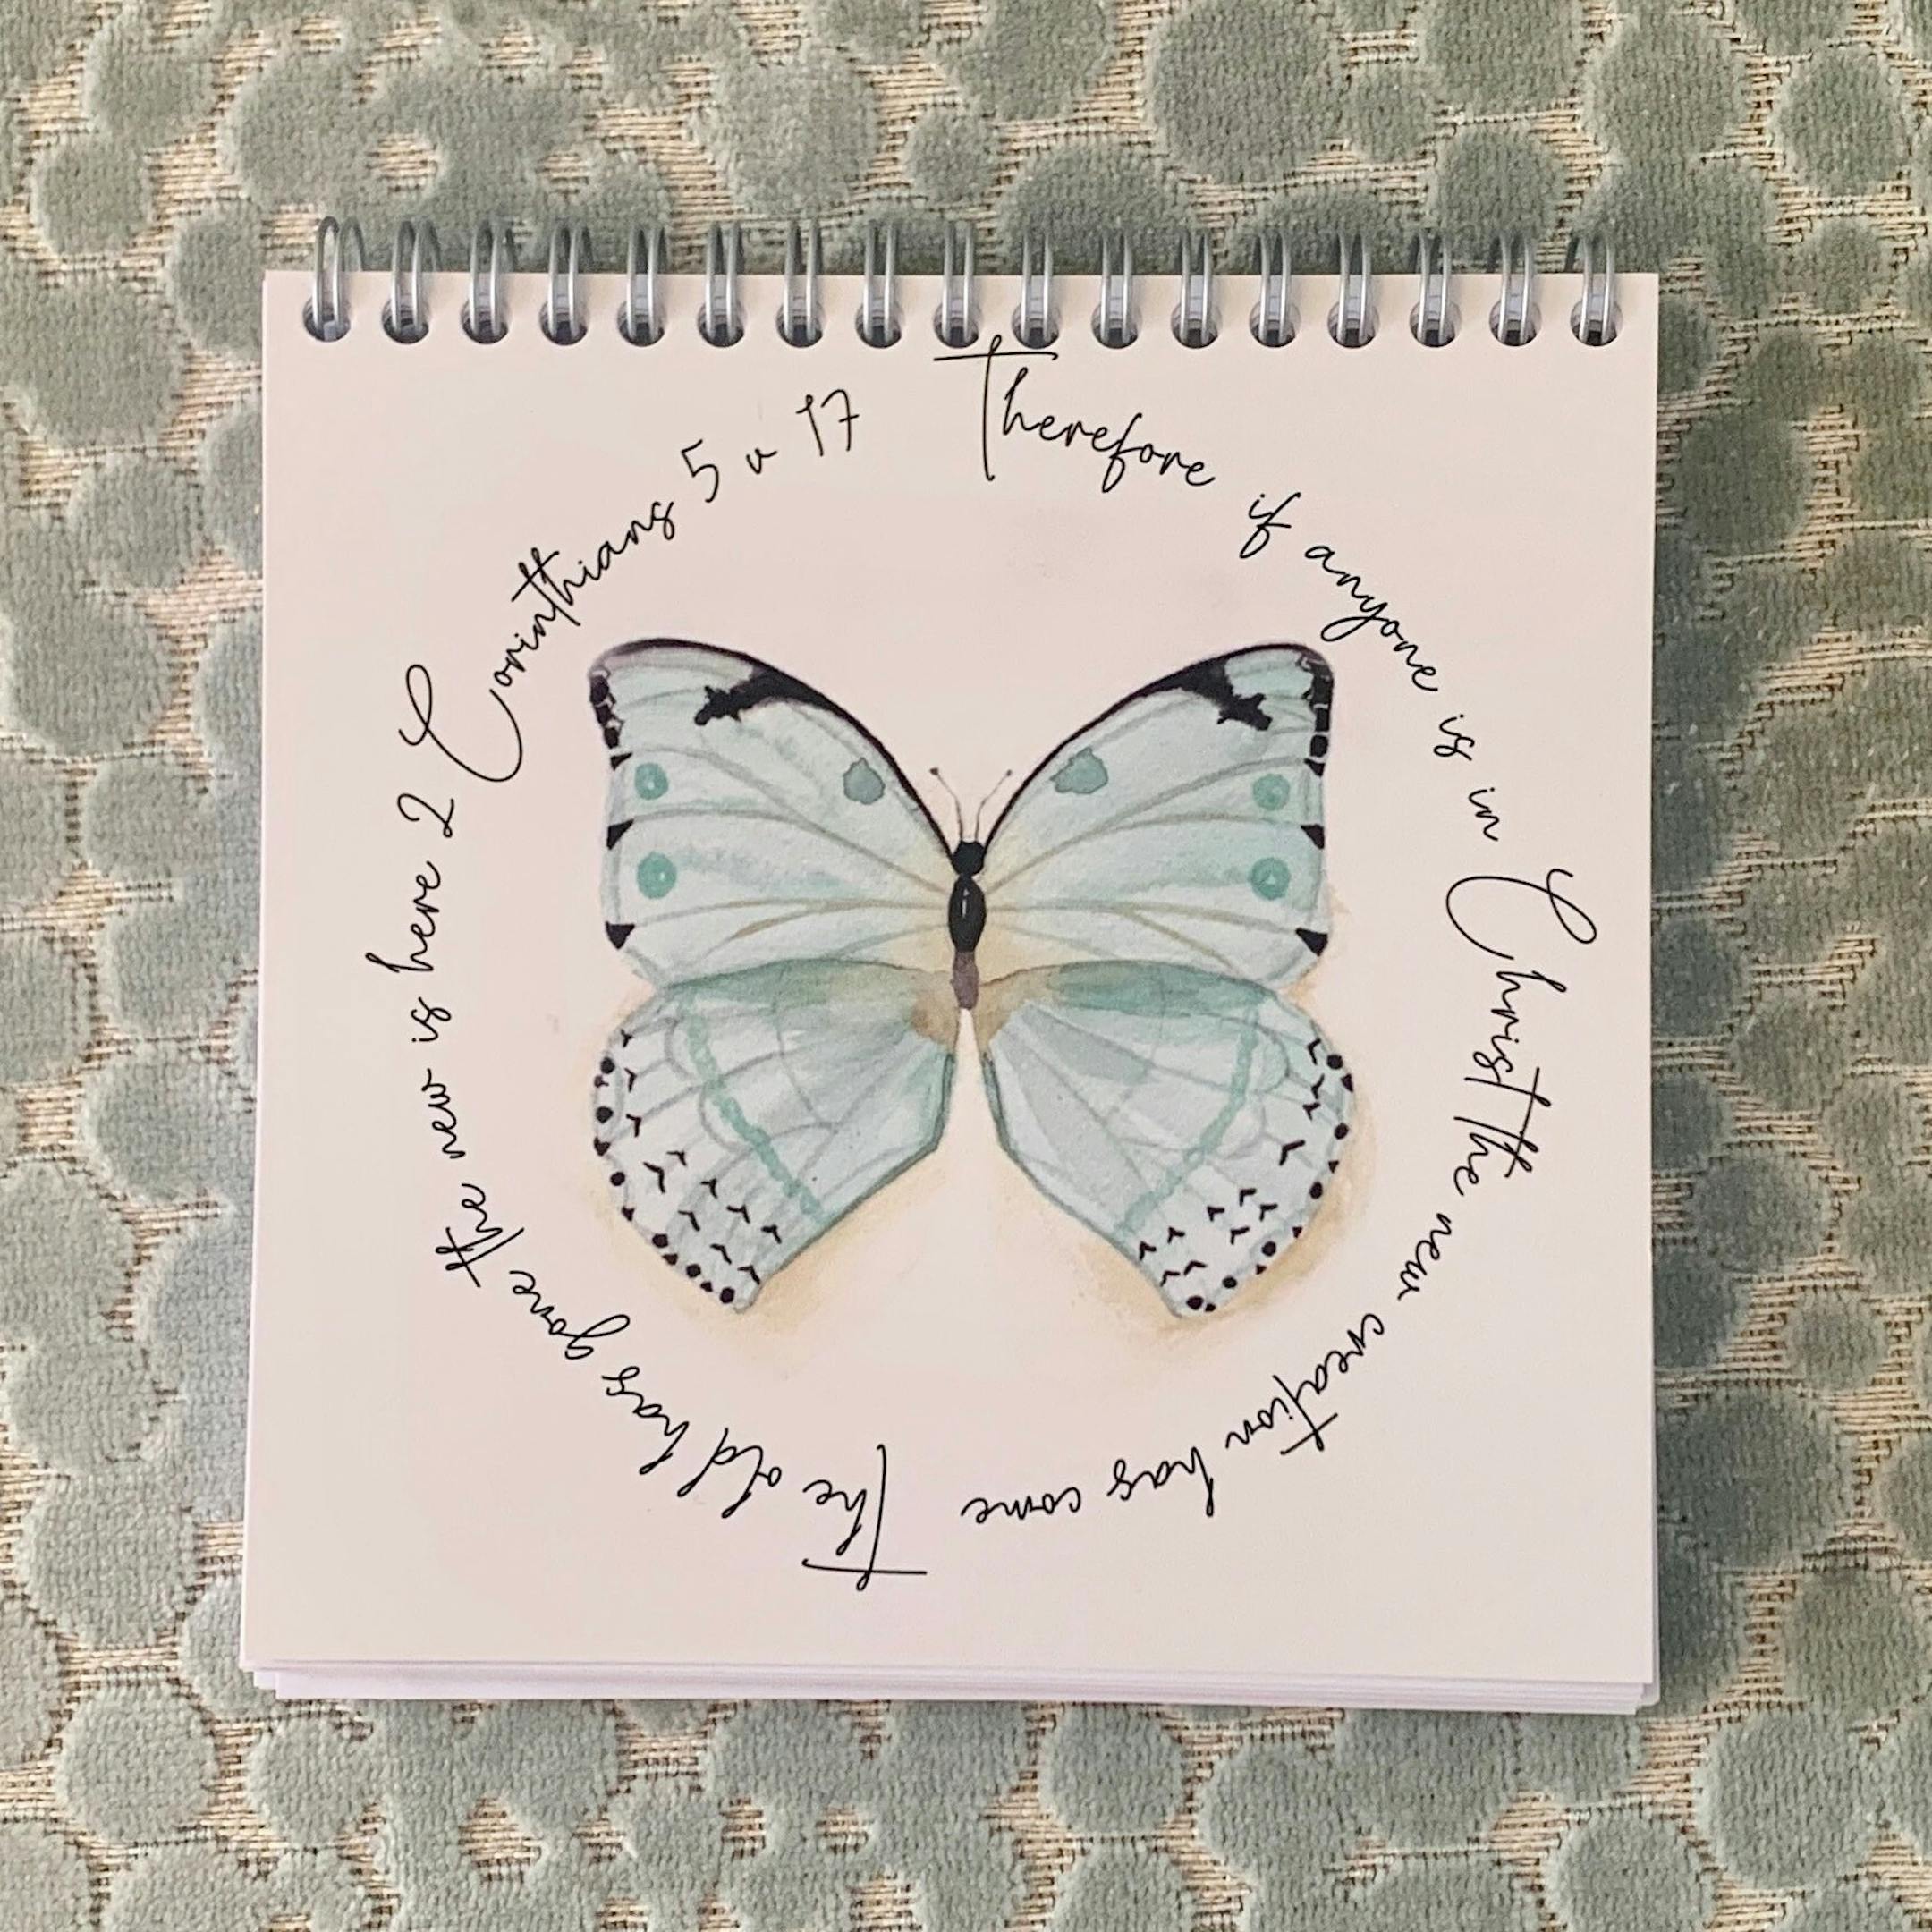 Therefore if anyone is in Christ the new creation has come The old has gone the new is here 2 Corinthians 5 v 17